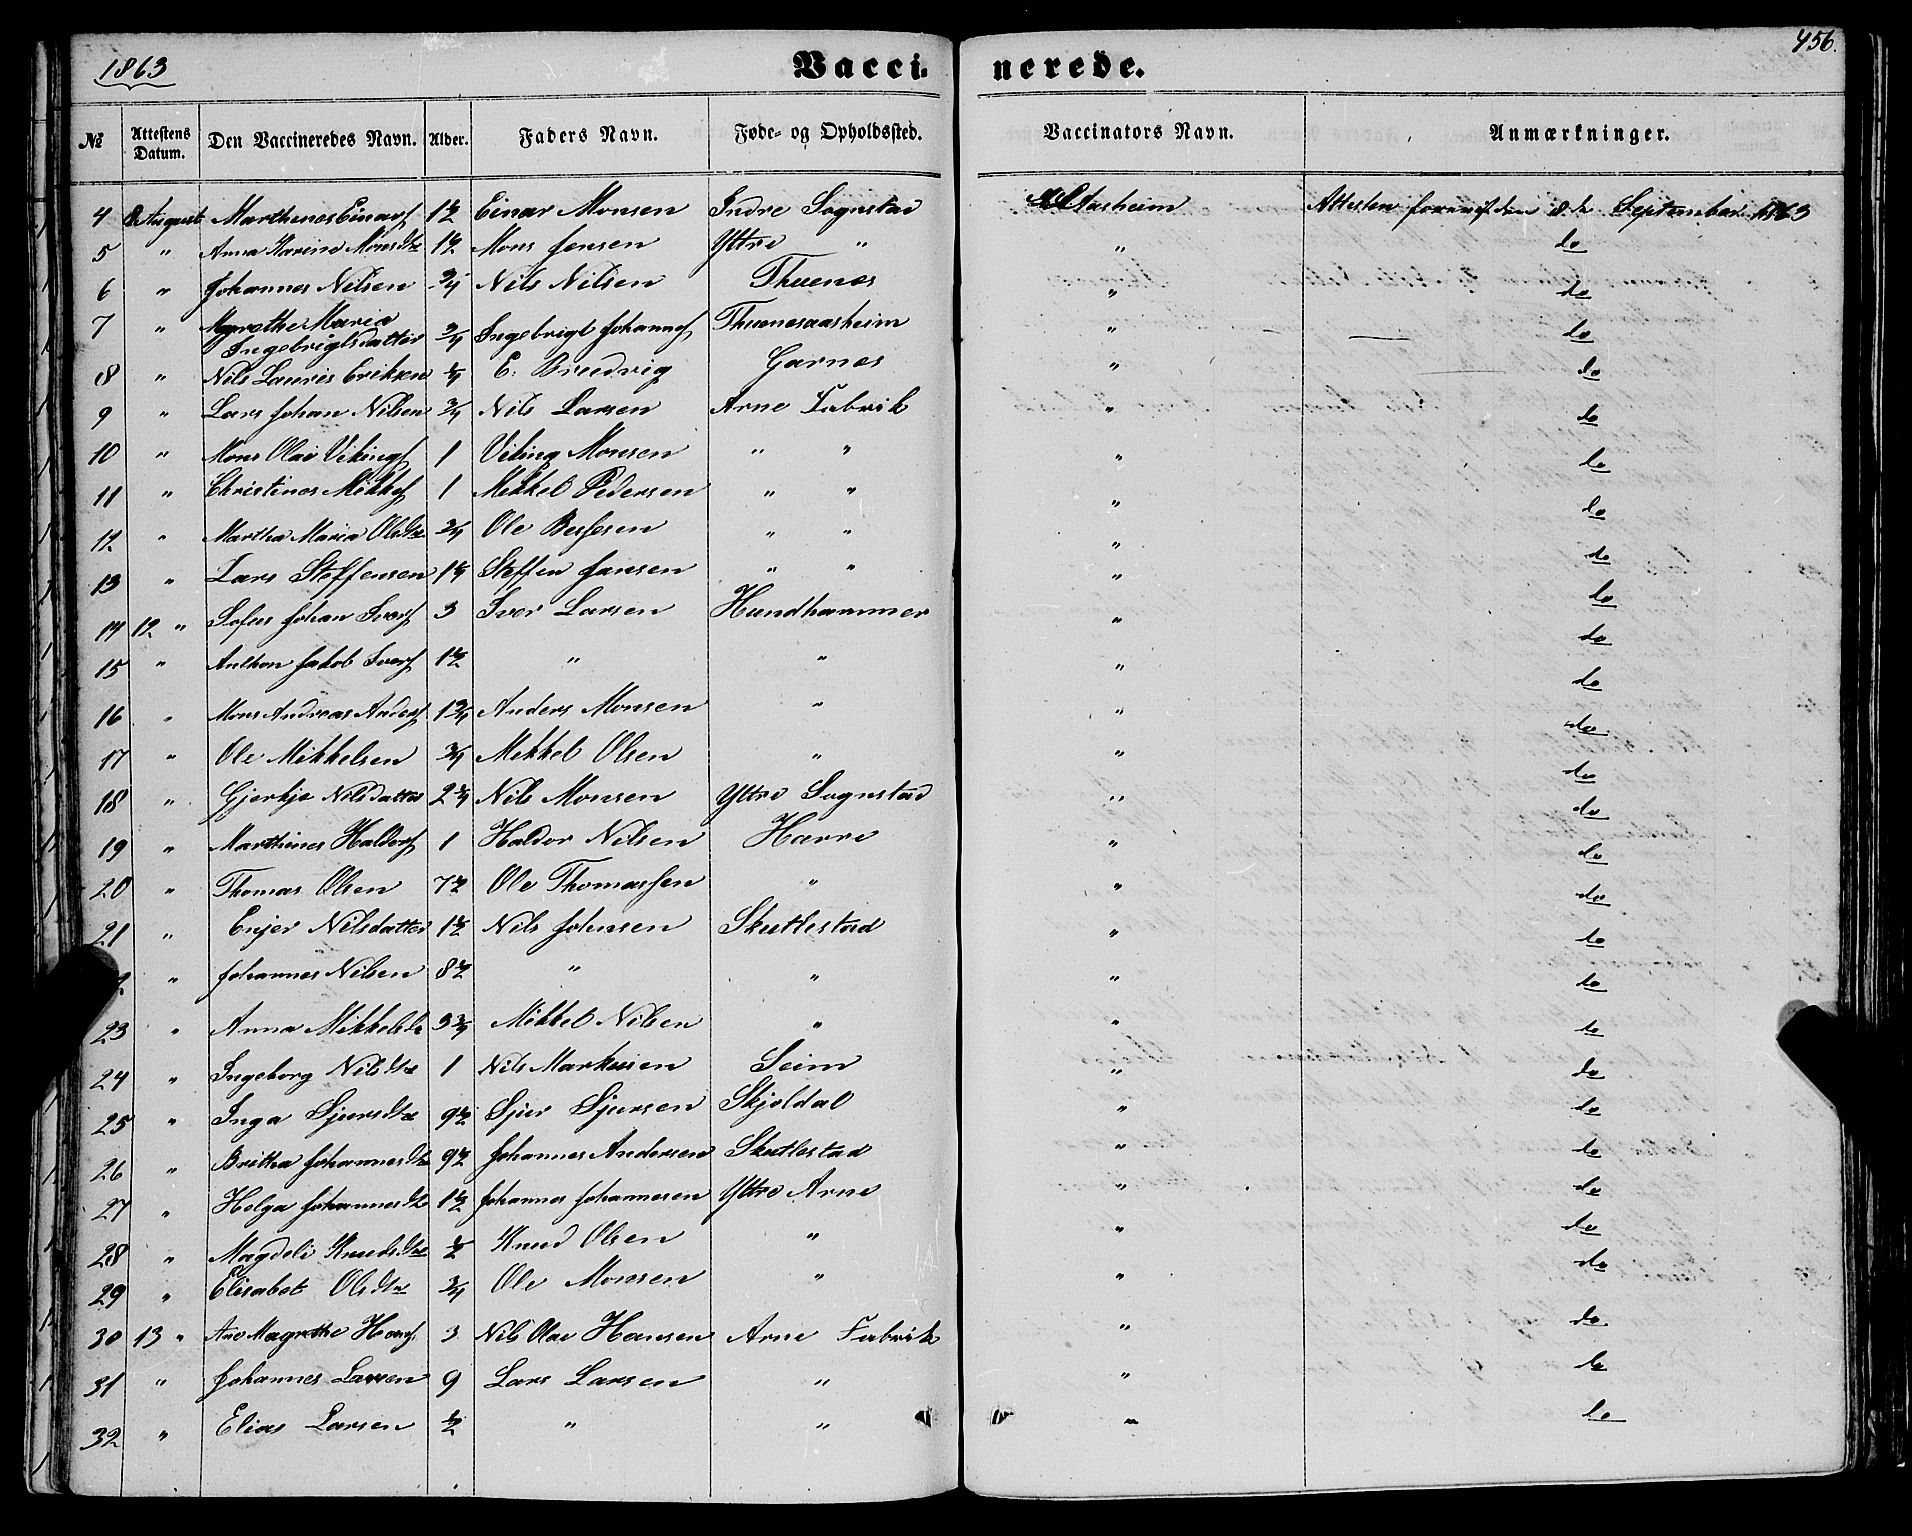 1863 Vacci- nerede. 456.
№ Attestens Datum. Den Vaccineredes Navn. Alder. Faders Navn. Føde- og Opholdssted. Vaccinators Navn. Anmærkninger.
4 8 August Marthenes Einars 1½ Einar Monsen Indre Sognstad Aasheim Attesten September 1863
5 " Anna Karine Monsdtr 1½ Mons Jensen Yttre " " do
6 " Johannes Nilsen ¾ Nils Nilsen Thuenes " do
7 " Magrethe Maria Ingebrigtsdatter ¾ Ingebrigt Johannes Thuenesaasheim " do
8 " Nils Lauris Eriksen ¼ E: Brudvig Garnes " do
9 " Lars Johan Nilsen ¾ Nils Larsen Arne Fabrik " do
10 " Mons Olai Vikings 1 Viking Monsen " " " do
11 " Christines Mikkels 1 Mikkel Pedersen " " " do
12 " Martha Maria Olsdtr ¾ Ole Bessesen " " " do
13 " Lars Steffensen 1¼ Steffen Jansen " " " do
14 12 " Sofus Johan Ivers 3 Iver Larsen Hundhammer " do
15 " Anthon Jakob Ivers 1½ " " " do
16 " Mons Andreas Anders 1¾ Anders Monsen " " do
17 " Ole Mikkelsen ¾ Mikkel Olsen " " do
18 " Gjerkje Nilsdatter 2¾ Nils Monsen Yttre Sognstad " do
19 " Marthines Haldors 1 Haldor Nilsen Havre " do
20 " Thomas Olsen 7½ Ole Thomassen " " do
21 " Enjer Nilsdatter 1½ Nils Johnsen Skutlestad " do
" Johannes Nilsen 8½ " " " do
23 " Anna Mikkelsdtr 3¾ Mikkel Nilsen " " do
24 " Ingeborg Nilsdtr 1 Nils Markusen Seim " do
25 " Inga Sjursdtr 9½ Sjur Sjursen Skjoldal " do
26 " Britha Johannesdtr 9½ Johannes Andersen Skutlestad " do
27 " Helga Johannesdtr 1½ Johannes Johannesen Yttre Arne " do
28 " Magdeli Knudsdtr ½ Knud Olsen " " do
29 " Elisabet Olsdtr ¾ Ole Monsen " " do
30 13 " Ane Magrethe Hans 3 Nils Olai Hansen Arne Fabrik " do
31 " Johannes Larsen 9 Lars Larsen " " do
32 " Elias Larsen ½ " " " do